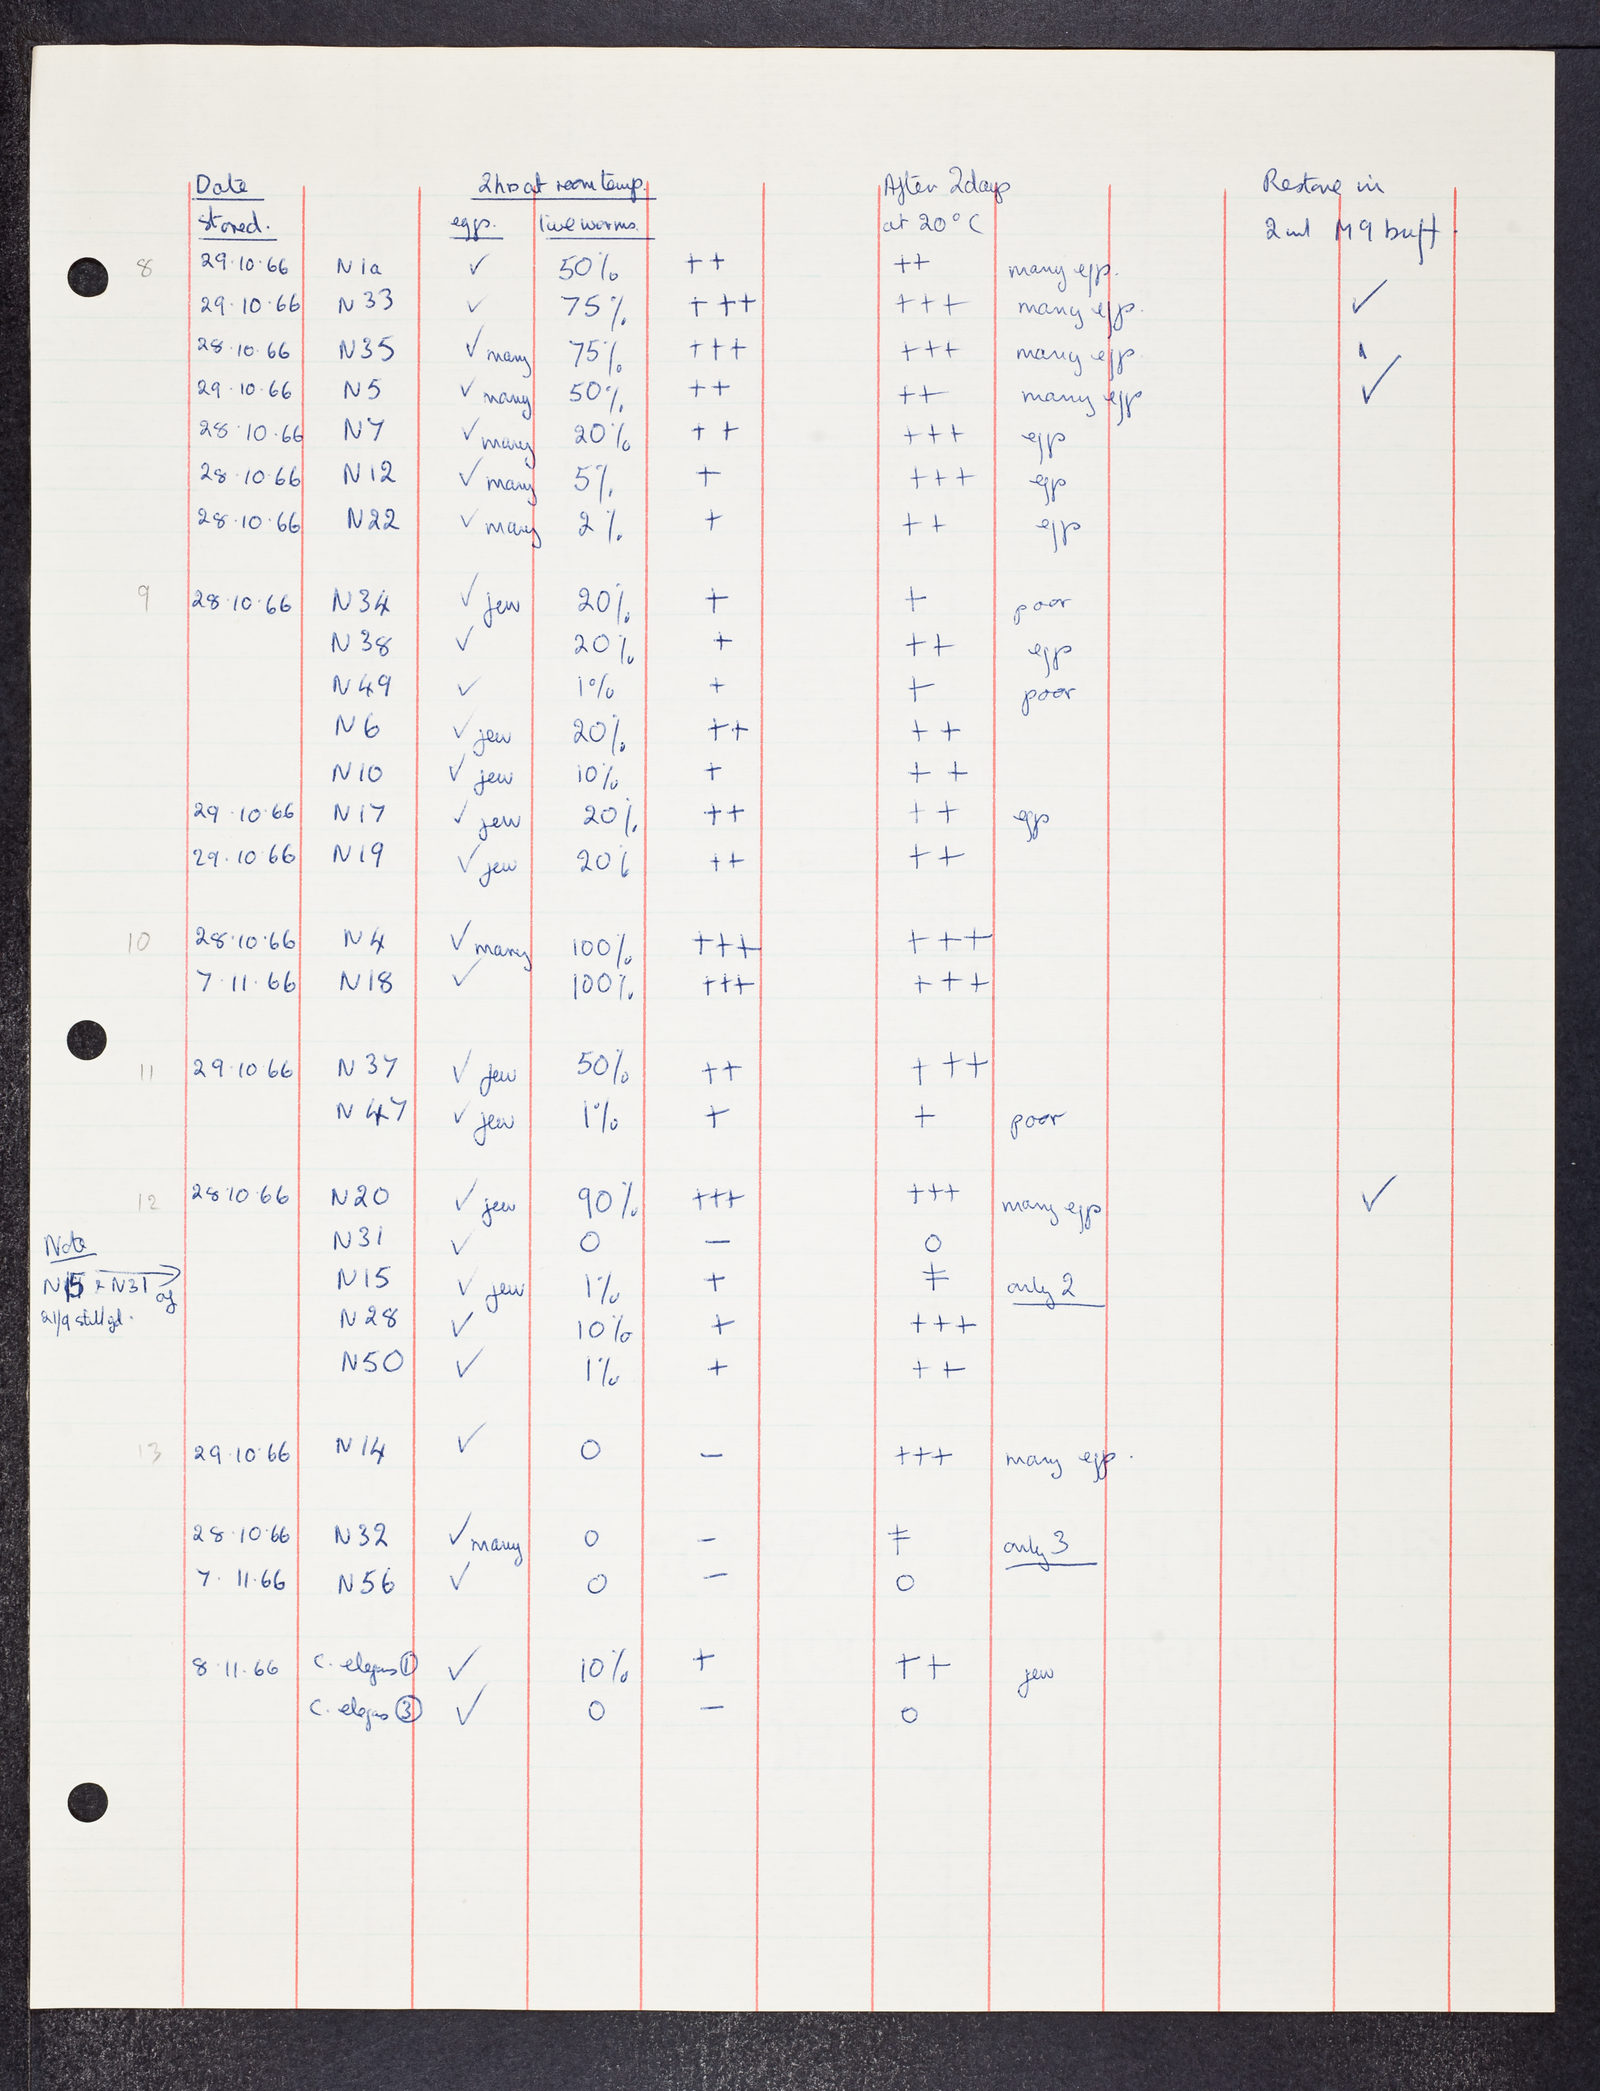 Date 2hrs at room temp. After 2 days Restore in
stored. eggs. live worms. at 20°C 2 ml M9 buff.
8 29.10.66 N1a ✓ 50% ++ ++ many eggs.
29.10.66 N33 ✓ 75% +++ +++ many eggs. ✓
28.10.66 N35 ✓ many 75% +++ +++ many eggs.
29.10.66 N5 ✓ many 50% ++ ++ many eggs ✓
28.10.66 N7 ✓ many 20% ++ +++ eggs
28.10.66 N12 ✓ many 5% + +++ eggs
28.10.66 N22 ✓ many 2% + ++ eggs
9 28.10.66 N34 ✓ few 20% + + poor
N38 ✓ 20% + ++ eggs
N49 ✓ 1% + + poor
N6 ✓ few 20% ++ ++
N10 ✓ few 10% + ++
29.10.66 N17 ✓ few 20% ++ ++ eggs
29.10.66 N19 ✓ few 20% ++ ++
10 28.10.66 N4 ✓ many 100% +++ +++
7.11.66 N18 ✓ 100% +++ +++
11 29.10.66 N37 ✓ few 50% ++ +++
N47 ✓ few 1% + + poor
12 28.10.66 N20 ✓ few 90% +++ +++ many eggs ✓
Note N31 ✓ 0 — 0
N15 & N31 of N15 ✓ few 1% + ‡ only 2
21/9 still gd. N28 ✓ 10% + +++
N50 ✓ 1% + ++
13 29.10.66 N14 ✓ 0 — +++ many eggs.
28.10.66 N32 ✓ many 0 — ‡ only 3
7.11.66 N56 ✓ 0 — 0
8.11.66 C. elegans ① ✓ 10% + ++ few
C. elegans ③ ✓ 0 — 0